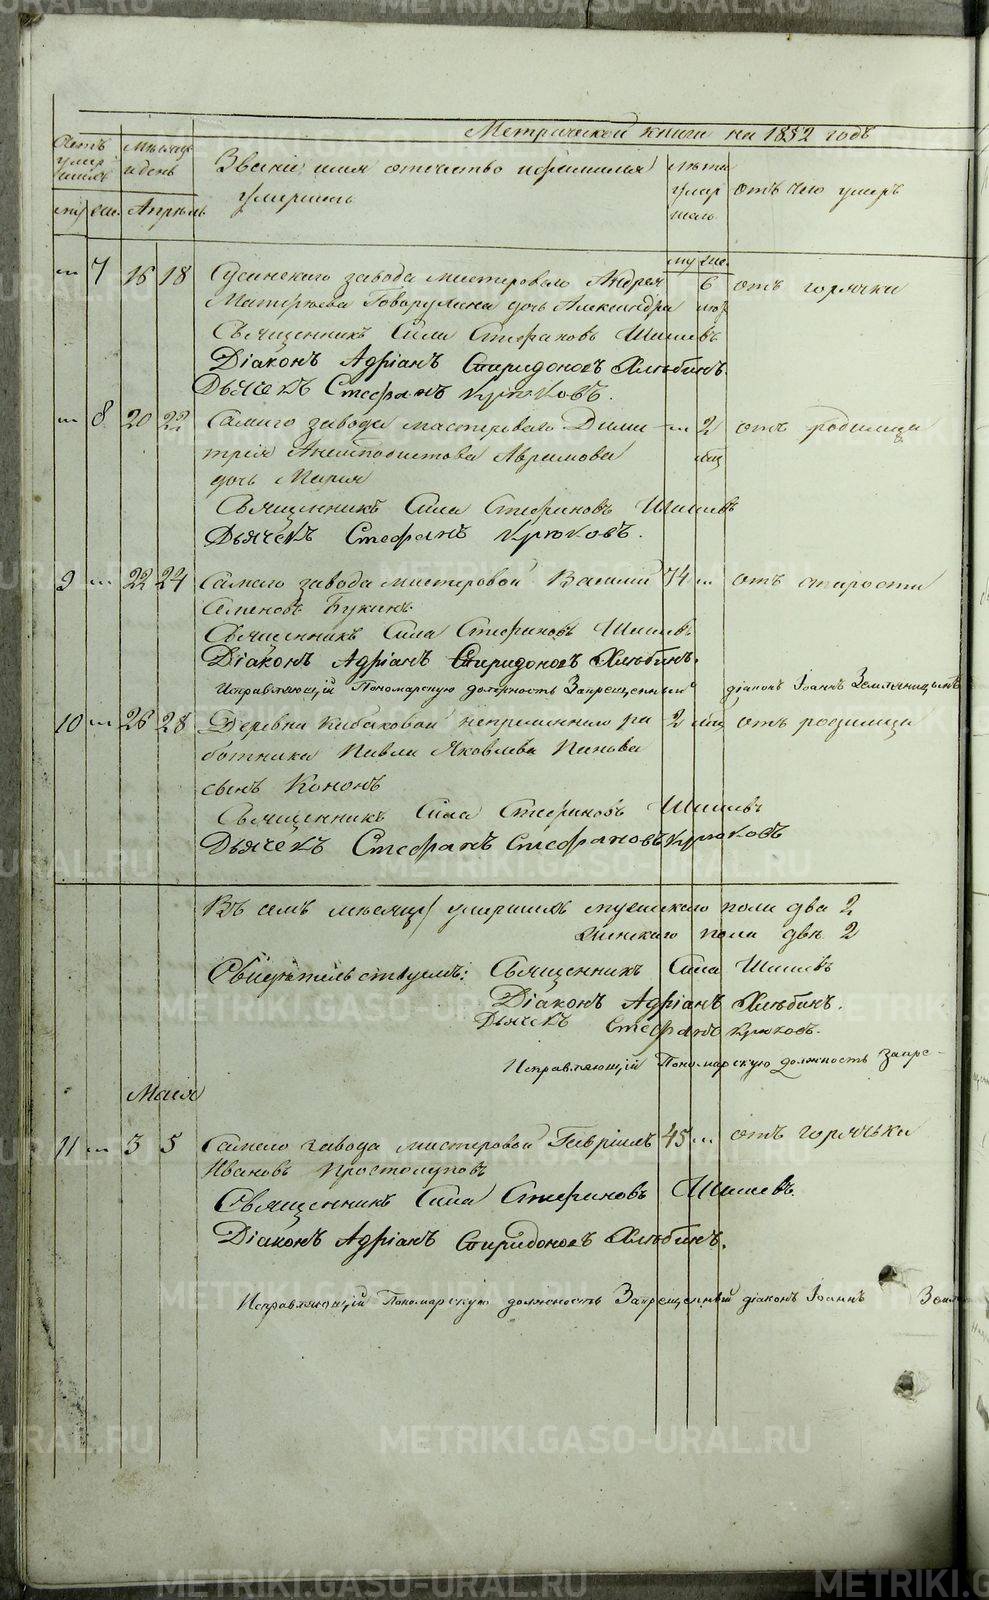 Метрической книги на 1852 годъ
Счетъ умершихъ
Мѣсяцъ и день
Званіе, имя отчество и фамилія умершихъ
лѣта умершихъ
отъ чего умеръ
му же. Апрѣль
му же.
" 7 16 18 завода мастероваго Андрея 6 отъ горячки
дочь Александра
Священникъ Сила Стефановъ Шишевъ
Діаконъ Адріанъ Спиридоновъ Хлѣбинъ.
Дьячекъ Стефанъ Крюковъ.
" 8 20 22 Самаго завода мастероваго Дими- " 2 отъ родимца
трія Аврамова мѣц
дочь Марія
Священникъ Сила Стефановъ Шишевъ
Дьячекъ Стефанъ Крюковъ.
9 " 22 24 Самаго завода мастеровой Василий 74 " отъ старости
Семеновъ Букинъ.
Священникъ Сила Стефановъ Шишевъ
Діаконъ Адріанъ Спиридоновъ Хлѣбинъ.
Исправляющій Пономарскую должность Запрещенный діаконъ Іоаннъ Земляницынъ
10 " 26 28 Деревни непремѣннаго ра 2 мѣц отъ родимца
ботника Павла Яковлева Панова
сынъ Кононъ
Священникъ Сила Стефановъ Шишевъ
Дьячекъ Стефанъ Стефановъ Крюковъ
Въ семъ мѣсяцѣ умершихъ мужескаго пола два 2
женскаго пола двѣ 2
Свидѣтельствуемъ: Священникъ Сила Шишевъ
Діаконъ Адріанъ Хлѣбинъ.
Дьячекъ Стефанъ Крюковъ.
Исправляющій Пономарскую должность Запре-
Маія
11 " 3 5 Самаго завода мастеровой Гавріилъ 45 " отъ горячьки
Ивановъ Простолуповъ
Священникъ Сила Стефановъ Шишевъ.
Діаконъ Адріанъ Спиридоновъ Хлѣбинъ.
Исправляющій Пономарскую должность Запрещенный діаконъ Іоаннъ Земля
METRIKI.GASO-URAL.RU